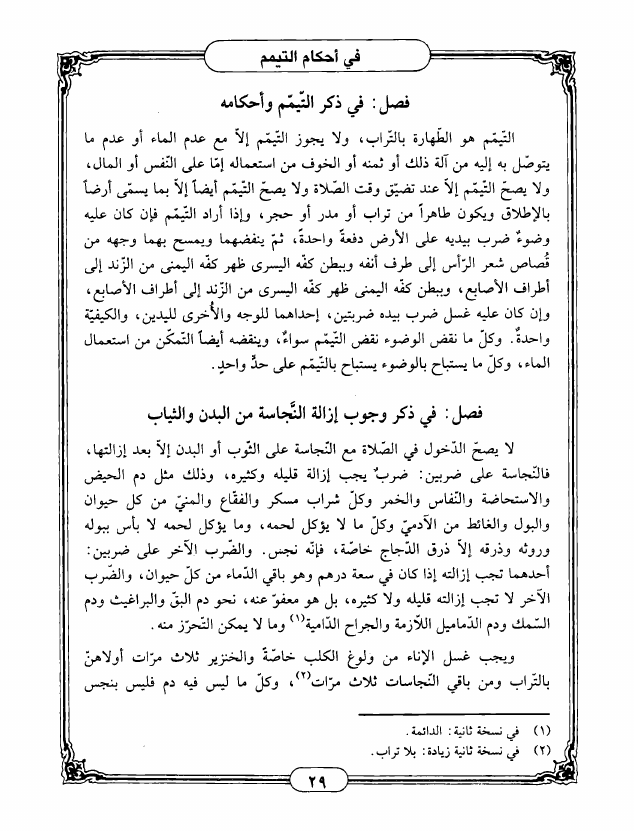 في أحكام التيمم
فصل: في ذكر التّيمّم وأحكامه
التّيمّم هو الطّهارة بالتّراب، ولا يجوز التّيمّم إلاّ مع عدم الماء أو عدم ما
يتوصّل به إليه من آلة ذلك أو ثمنه أو الخوف من استعماله إمّا على النّفس أو المال،
ولا يصحّ التّيمّم إلاّ عند تضيّق وقت الصّلاة ولا يصحّ التّيمّم أيضاً إلاّ بما يسمّى أرضاً
بالإطلاق ويكون طاهراً من تراب أو مدر أو حجر، وإذا أراد التّيمّم فإن كان عليه
وضوءٌ ضرب بيديه على الأرض دفعةً واحدةً، ثمّ ينفضهما ويمسح بهما وجهه من
قُصاص شعر الرّأس إلى طرف أنفه وببطن كفّه اليسرى ظهر كفّه اليمنى من الزّند إلى
أطراف الأصابع، وببطن كفّه اليمنى ظهر كفّه اليسرى من الزّند إلى أطراف الأصابع،
وإن كان عليه غسل ضرب بيده ضربتين، إحداهما للوجه والأُخرى لليدين، والكيفيّة
واحدةٌ. وكلّ ما نقض الوضوء نقض التّيمّم سواءٌ، وينقضه أيضاً التّمكّن من استعمال
الماء، وكلّ ما يستباح بالوضوء يستباح بالتّيمّم على حدٍّ واحدٍ.
فصل: في ذكر وجوب إزالة النَّجاسة من البدن والثياب
لا يصحّ الدّخول في الصّلاة مع النّجاسة على الثّوب أو البدن إلاّ بعد إزالتها،
فالنّجاسة على ضربين: ضربٌ يجب إزالة قليله وكثيره، وذلك مثل دم الحيض
والاستحاضة والنّفاس والخمر وكلّ شراب مسكر والفقّاع والمنيّ من كل حيوان
والبول والغائط من الآدميّ وكلّ ما لا يؤكل لحمه، وما يؤكل لحمه لا بأس ببوله
وروثه وذرقه إلاّ ذرق الدّجاج خاصّة، فإنّه نجس. والضّرب الآخر على ضربين:
أحدهما تجب إزالته إذا كان في سعة درهم وهو باقي الدّماء من كلّ حيوان، والضّرب
الآخر لا تجب إزالته قليله ولا كثيره، بل هو معفوّ عنه، نحو دم البقّ والبراغيث ودم
السّمك ودم الدّماميل اللاّزمة والجراح الدّامية(١) وما لا يمكن التّحرّز منه.
ويجب غسل الإناء من ولوغ الكلب خاصّةً والخنزير ثلاث مرّات أولاهنّ
بالتّراب ومن باقي النّجاسات ثلاث مرّات(٢)، وكلّ ما ليس فيه دم فليس بنجس
(١) في نسخة ثانية: الدائمة.
(٢) في نسخة ثانية زيادة: بلا تراب.
٢٩